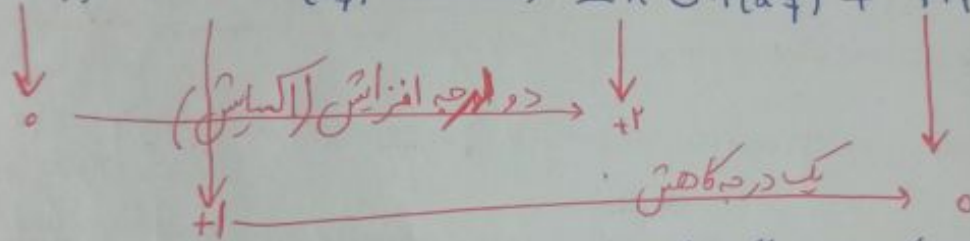 دو درجه افزایش (اکسایش)
۰ +۲
یک درجه کاهش
+۱ ۰